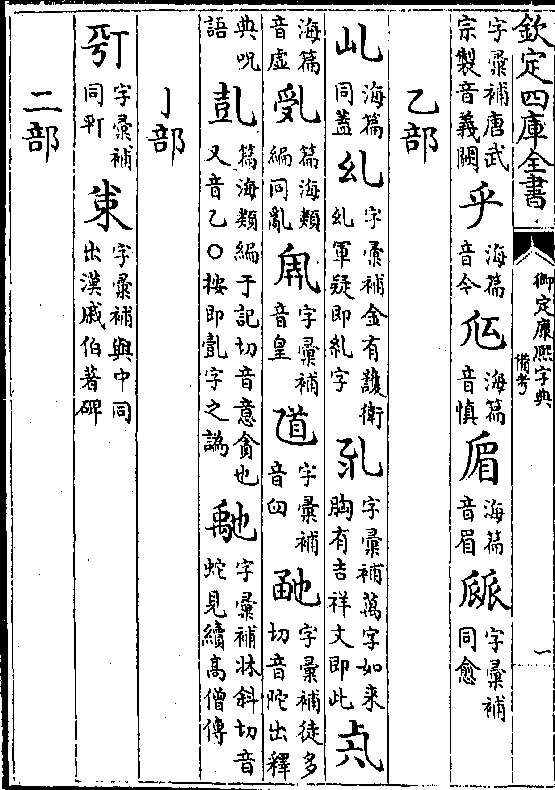 欽定四庫全書
御定康熙字典
備考
一
字彙補唐武宗製音義闕 海篇音令 海篇音慎 海篇音眉 字彙補同愈
乙部
乢 海篇同蓋 字彙補金有護衛糺軍疑即糺字 字彙補萬字如来胸有吉祥文即此
海篇音虛 篇海類編同亂 字彙補音皇 字彙補音 字彙補徒多切音陀出釋
典呪語 篇海類編于記切音意貪也又音乙〇按即亄字之譌 字彙補牀斜切音蛇見續高僧傳
亅部
字彙補同 字彙補與中同出漢戚伯著碑
二部